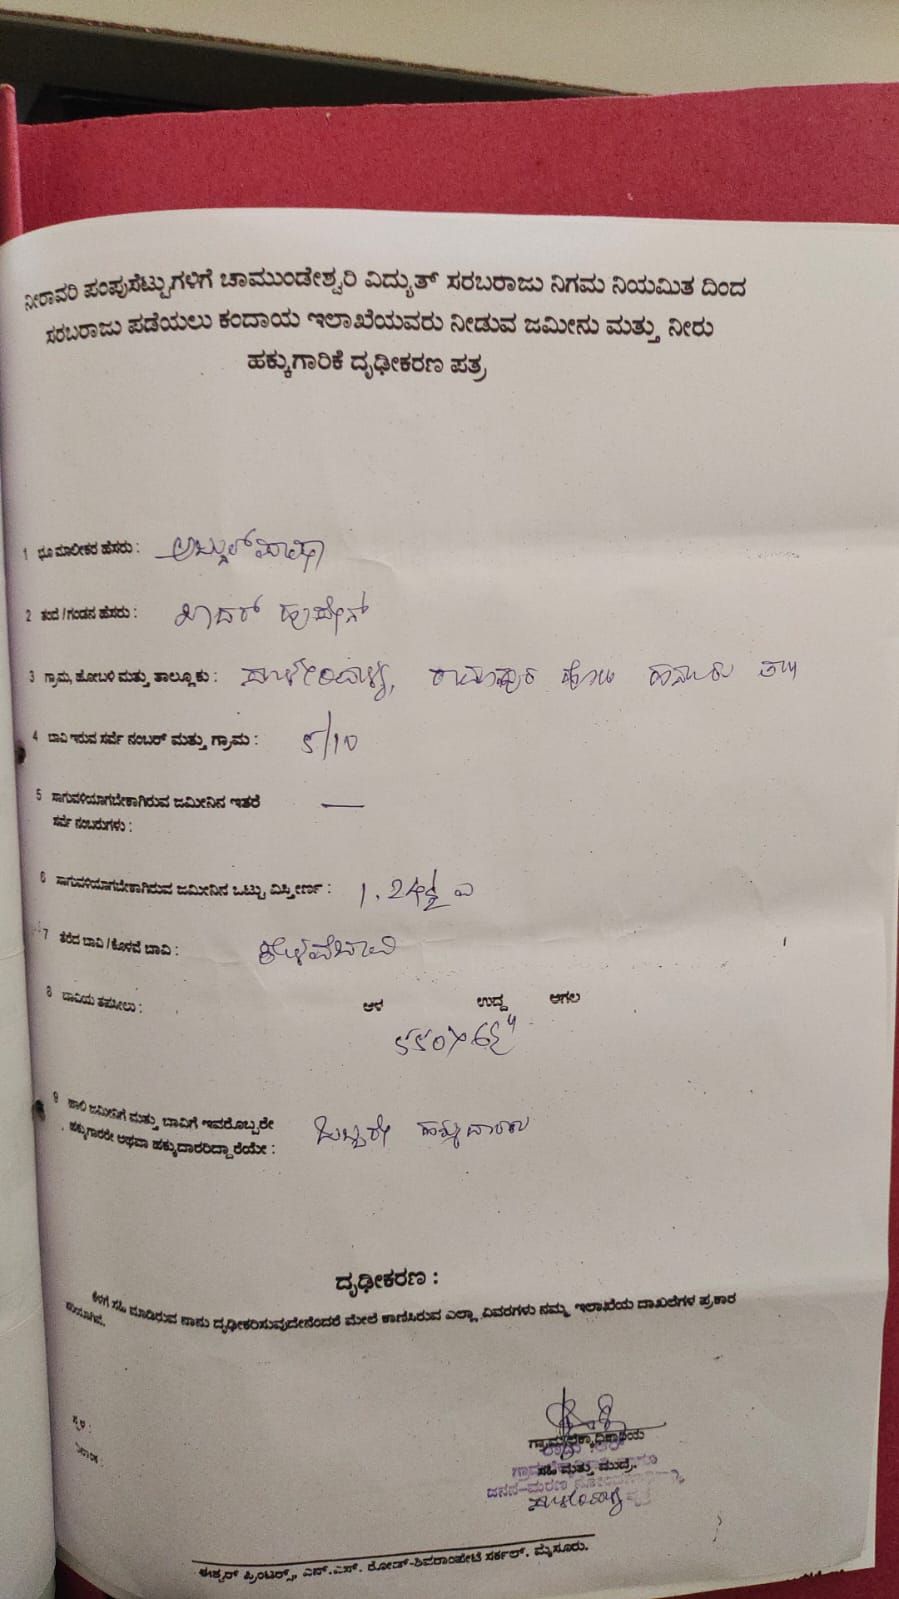 ನೀರಾವರಿ ಪಂಪುಸೆಟ್ಟುಗಳಿಗೆ ಚಾಮುಂಡೇಶ್ವರಿ ವಿದ್ಯುತ್ ಸರಬರಾಜು ನಿಗಮ ನಿಯಮಿತ ದಿಂದ
ಸರಬರಾಜು ಪಡೆಯಲು ಕಂದಾಯ ಇಲಾಖೆಯವರು ನೀಡುವ ಜಮೀನು ಮತ್ತು ನೀರು
ಹಕ್ಕುಗಾರಿಕೆ ದೃಢೀಕರಣ ಪತ್ರ
1 ಭೂ ಮಾಲೀಕರ ಹೆಸರು :
2 ತಂದೆ/ಗಂಡನ ಹೆಸರು : ಖಾದರ್ ಹುಸೇನ್
3 ಗ್ರಾಮ, ಹೋಬಳಿ ಮತ್ತು ತಾಲ್ಲೂಕು : ರಾಮಾಪುರ ಹೋಬಳಿ ಹನೂರು ತಾ||
4 ಬಾವಿ ಇರುವ ಸರ್ವೆ ನಂಬರ್ ಮತ್ತು ಗ್ರಾಮ : 5/10
5 ಸಾಗುವಳಿಯಾಗಬೇಕಾಗಿರುವ ಜಮೀನಿನ ಇತರೆ —
ಸರ್ವೆ ನಂಬರುಗಳು :
6 ಸಾಗುವಳಿಯಾಗಬೇಕಾಗಿರುವ ಜಮೀನಿನ ಒಟ್ಟು ವಿಸ್ತೀರ್ಣ : 1.24½ ಎ
7 ತೆರೆದ ಬಾವಿ/ಕೊಳವೆ ಬಾವಿ : ಕೊಳವೆಬಾವಿ
8 ಬಾವಿಯ ತಪಸೀಲು : ಆಳ ಉದ್ದ ಅಗಲ
550X6½"
9 ಹಾಲಿ ಜಮೀನಿಗೆ ಮತ್ತು ಬಾವಿಗೆ ಇವರೊಬ್ಬರೇ
ಹಕ್ಕುಗಾರರೇ ಅಥವಾ ಹಕ್ಕುದಾರರಿದ್ದಾರೆಯೇ : ಒಬ್ಬರೇ ಹಕ್ಕುದಾರರು
ದೃಢೀಕರಣ :
ಕೆಳಗೆ ಸಹಿ ಮಾಡಿರುವ ನಾನು ದೃಢೀಕರಿಸುವುದೇನೆಂದರೆ ಮೇಲೆ ಕಾಣಿಸಿರುವ ಎಲ್ಲಾ ವಿವರಗಳು ನಮ್ಮ ಇಲಾಖೆಯ ದಾಖಲೆಗಳ ಪ್ರಕಾರ
ಸರಿಯಾಗಿವೆ.
ಸ್ಥಳ :
ದಿನಾಂಕ :
ಗ್ರಾಮ ಲೆಕ್ಕಾಧಿಕಾರಿಯ
ಸಹಿ ಮತ್ತು ಮುದ್ರೆ.
ಜನನ-ಮರಣ
ಈಶ್ವರ್ ಪ್ರಿಂಟರ್ಸ್, ಎನ್.ಎಸ್. ರೋಡ್-ಶಿವರಾಂಪೇಟೆ ಸರ್ಕಲ್. ಮೈಸೂರು.